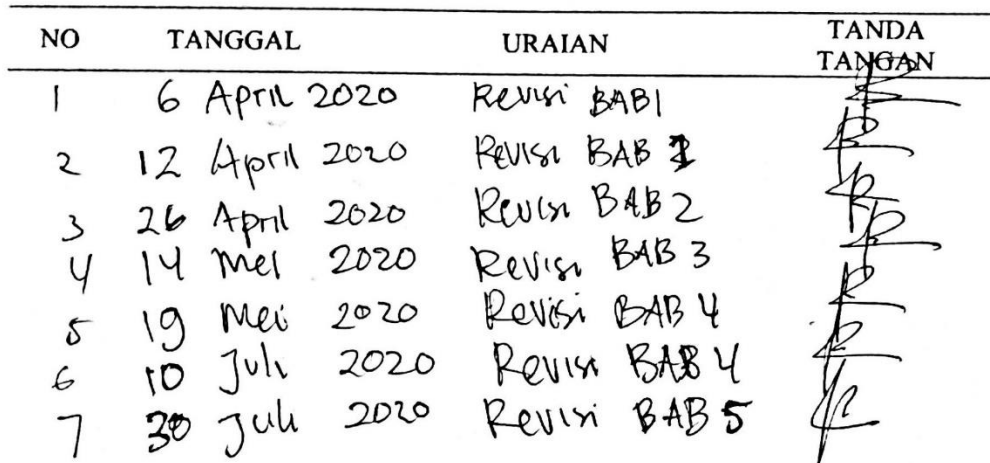 NO TANGGAL URAIAN TANDA TANGAN
1 6 April 2020 Revisi BAB 1
2 12 April 2020 Revisi BAB 1
3 26 April 2020 Revisi BAB 2
4 14 Mei 2020 Revisi BAB 3
5 19 Mei 2020 Revisi BAB 4
6 10 Juli 2020 Revisi BAB 4
7 30 Juli 2020 Revisi BAB 5